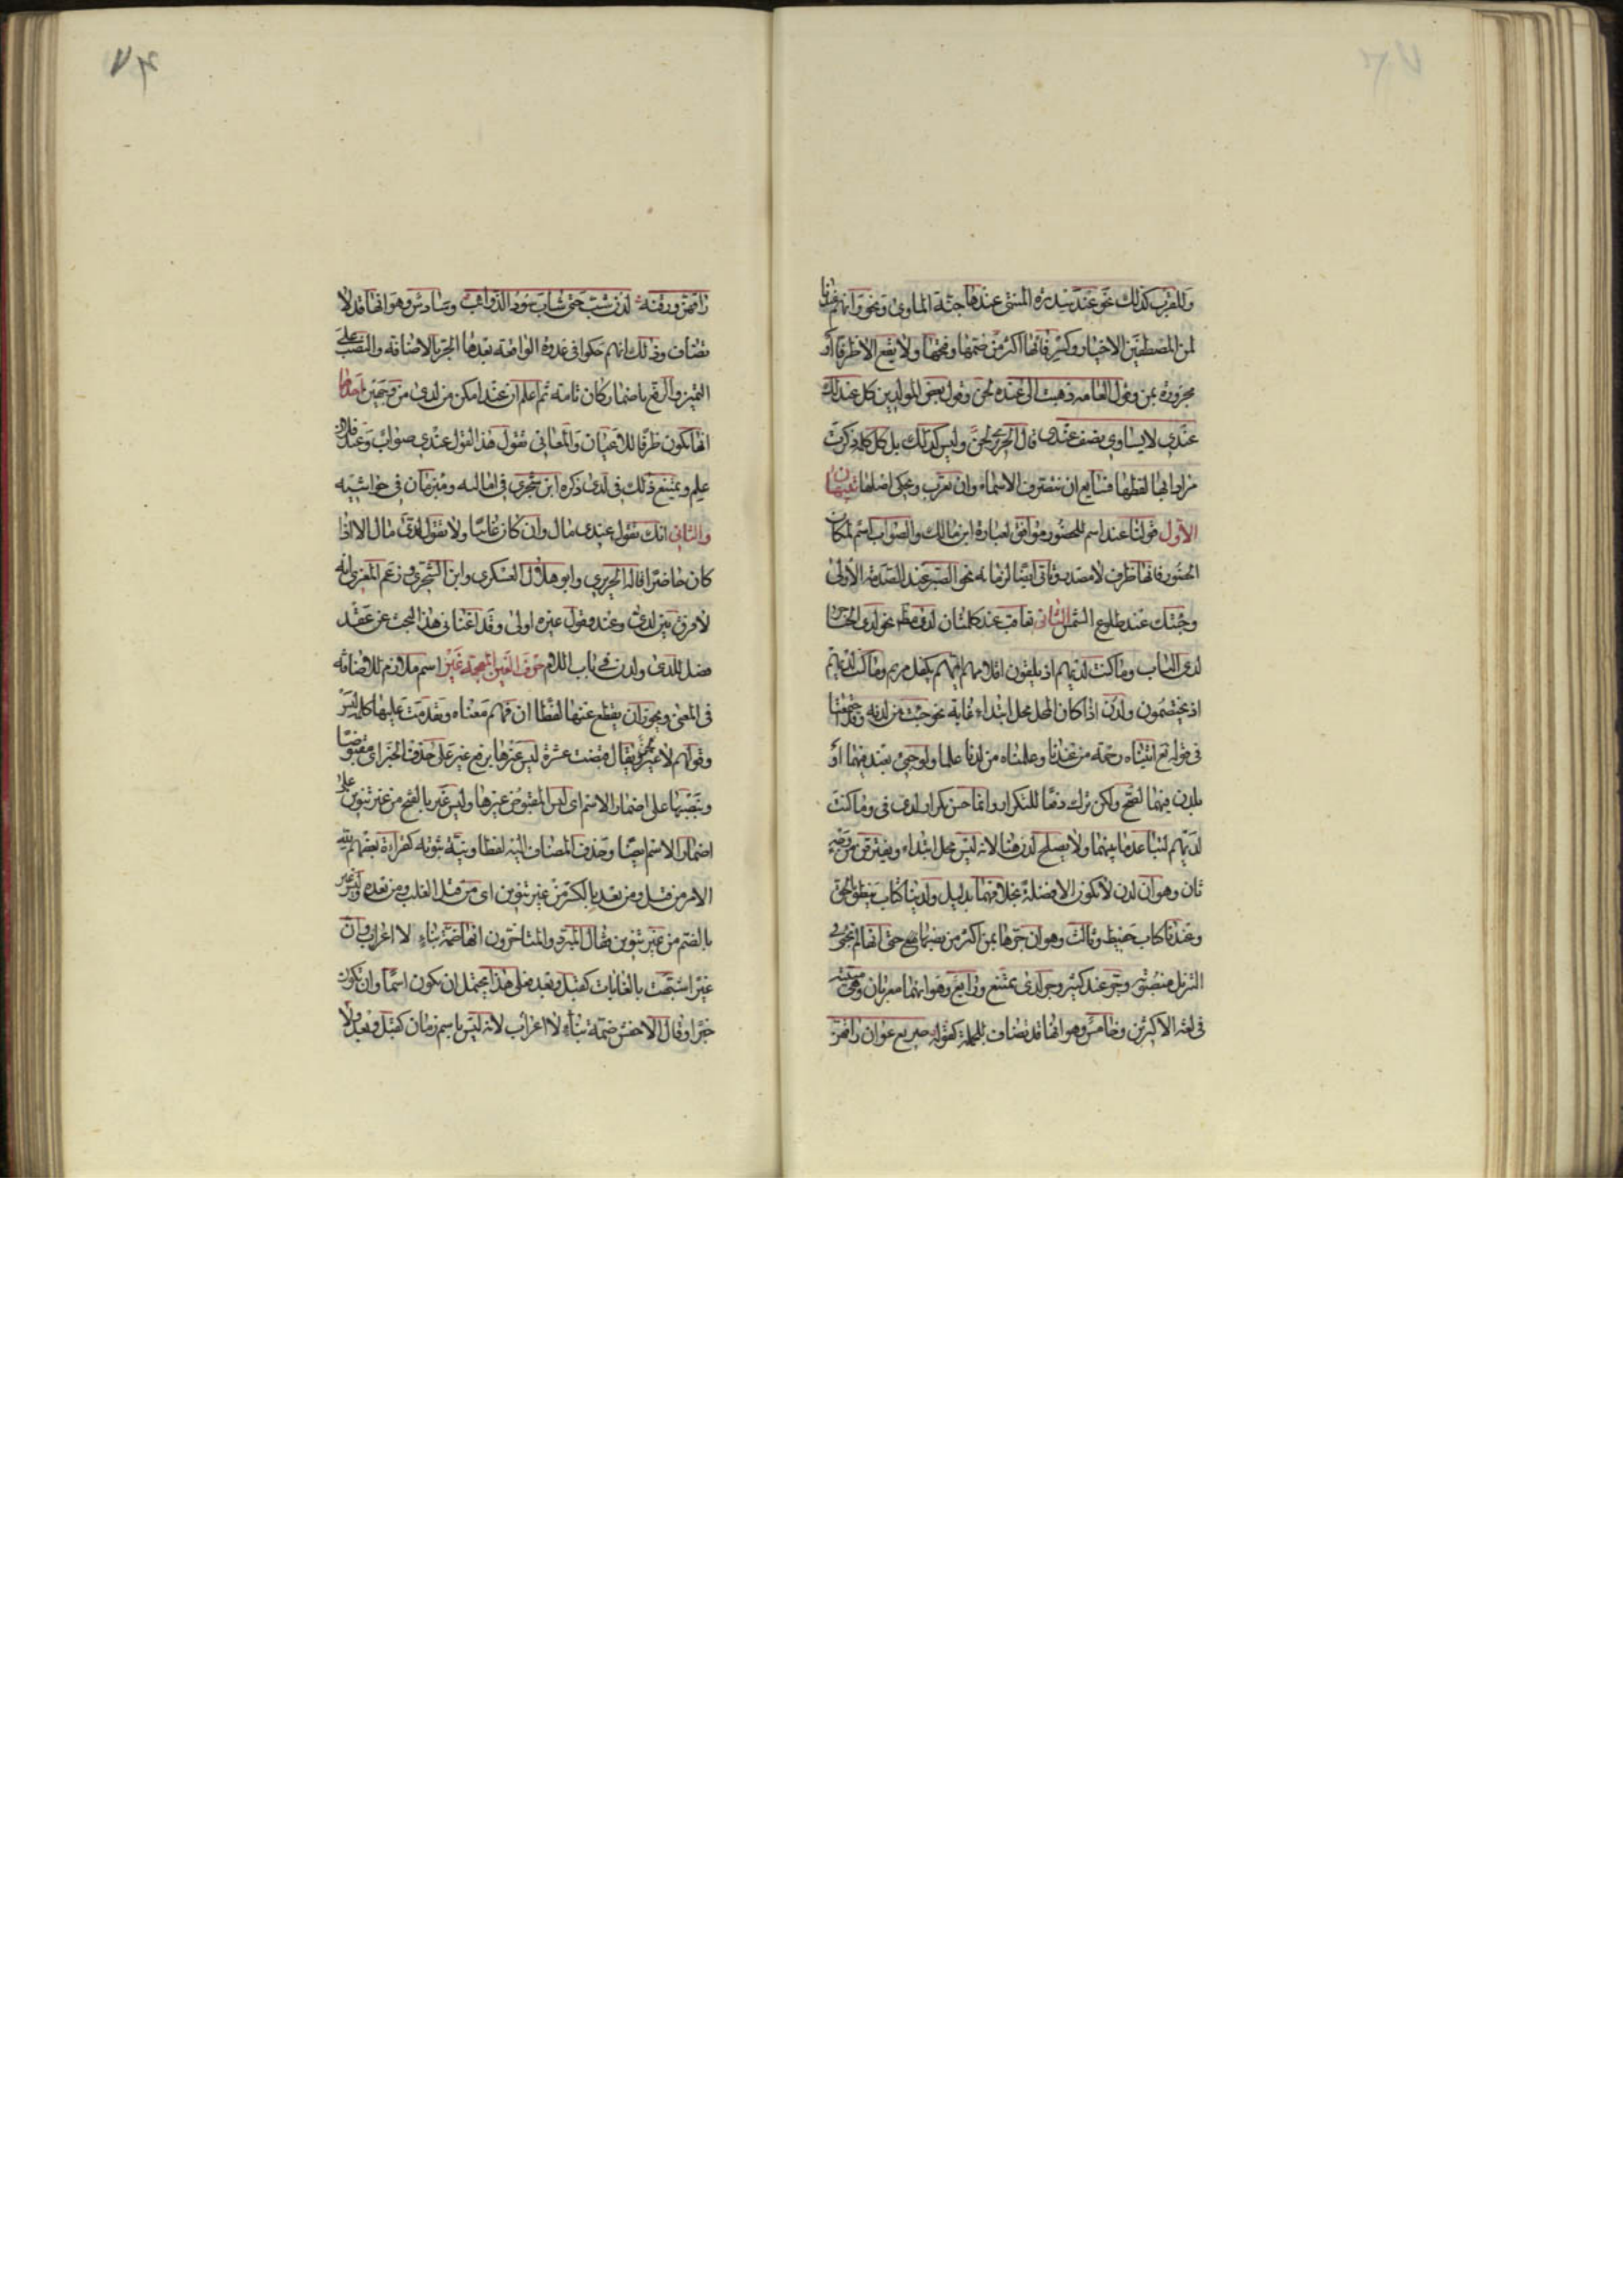 وللقرب كذلك نحو عند سدرة المنتهى عندها جنة المأوى ونحو وانهم عندنا
لمن المصطفين الاخيار وكسر فائها اكثر من ضمها وفتحها ولا يقع الا ظرفا او
مجرورة بمن وقول العامة ذهبت الى عنده لحن وقول بعض المولدين كل عند لك
عندي لا يساوي نصف عندي قال الحريري لحن وليس كذلك بل كل كلمة ذكرت
مرادا بها لفظها فسايغ ان تتصرف تصرف الاسماء وان تعرب ويحكى اصلها تنبيهان
الاول قولنا عند اسم للحضور موافق لعبارة ابن مالك والصواب اسم لمكان
الحضور فانها ظرف لا مصدر وتاتي ايضا لزمانه نحو الصبر عند الصدمة الاولى
وجئتك عند طلوع الشمس الثاني تعاقب عند كلمتان لدى مط نحو لدى الحناجر
لدى الباب وما كنت لديهم اذ يلقون اقلامهم ايهم يكفل مريم وما كنت لديهم
اذ يختصمون ولدن اذا كان المحل محل ابتداء غاية نحو جئت من لدنه وقد اجتمعتا
في قوله تع اتيناه رحمة من عندنا وعلمناه من لدنا علما ولو جيئ بعند فيهما او
بلدن فيهما لصح ولكن ترك دفعا للتكرار وانما حسن تكرار لدى في وما كنت
لديهم لتباعد ما بينهما ولا يصلح لدن هنا لانه ليس محل ابتداء ويفترقن من وجه
ثان وهو ان لدن لا تكون الا فضلة بخلافهما بدليل ولدينا كتاب ينطق بالحق
وعندنا كتاب حفيظ وثالث وهو ان جرها بمن اكثر من نصبها حتى انها لم تجئ في
التنزيل منصوبة وجر عند كثير وجر لدى ممتنع ورابع وهو انهما معربان وهي مبنية
في لغة الاكثرين وخامس وهو انها قد تضاف للجملة كقوله صريع غوان راقهن
راقهن ورقنه لدن شب حتى شاب سود الذوائب وسادس وهو انها قد لا
تضاف وذلك انهم حكوا في غدوة الواقعة بعدها الجر بالاضافة والنصب على
التميز والرفع باضمار كان تامة ثم اعلم ان عند امكن من لدى من وجهين احدهما
انها تكون ظرفا للاعيان والمعاني تقول هذا القول عندي صواب وعند فلان
علم ويمتنع ذلك في لدى ذكره ابن شجري في اماليه ومبرمان في حواشيه
والثاني انك تقول عندي مال وان كان غايبا ولا تقول لدي مال الا اذا
كان حاضرا قاله الحريري وابو هلال العسكري وابن الشجري وزعم المعري انه
لا فرق بين لدى وعند وقول غيره اولى وقد اغنانى هذا البحث عن عقد
فصل للدى ولدن في باب اللام حرف الغين المعجمة غير اسم ملازم للاضافة
في المعنى ويجوز ان يقطع عنها لفظا ان فهم معناه وتقدمت عليها كلمة ليس
وقولهم لا غير لحن ويقال قبضت عشرة ليس غيرها برفع غير على حذف الخبر اى مقبوضا
وبنصبها على اضمار الاسم اى ليس المقبوض غيرها وليس غير بالفتح من غير تنوين على
اضمار الاسم ايضا وحذف المضاف اليه لفظا ونية ثبوته كقراءة بعضهم لله
الامر من قبل ومن بعد بالكسر من غير تنوين اى من قبل الغلب ومن بعده وليس غير
بالضم من غير تنوين فقال المبرد والمتاخرون انها ضمة بناء لا اعراب وان
غير اشبهت بالغايات كقبل وبعد فعلى هذا يحتمل ان يكون اسما وان تكون
خبرا وقال الاخفش ضمة بناء لا اعراب لانه ليس باسم زمان كقبل وبعد ولا